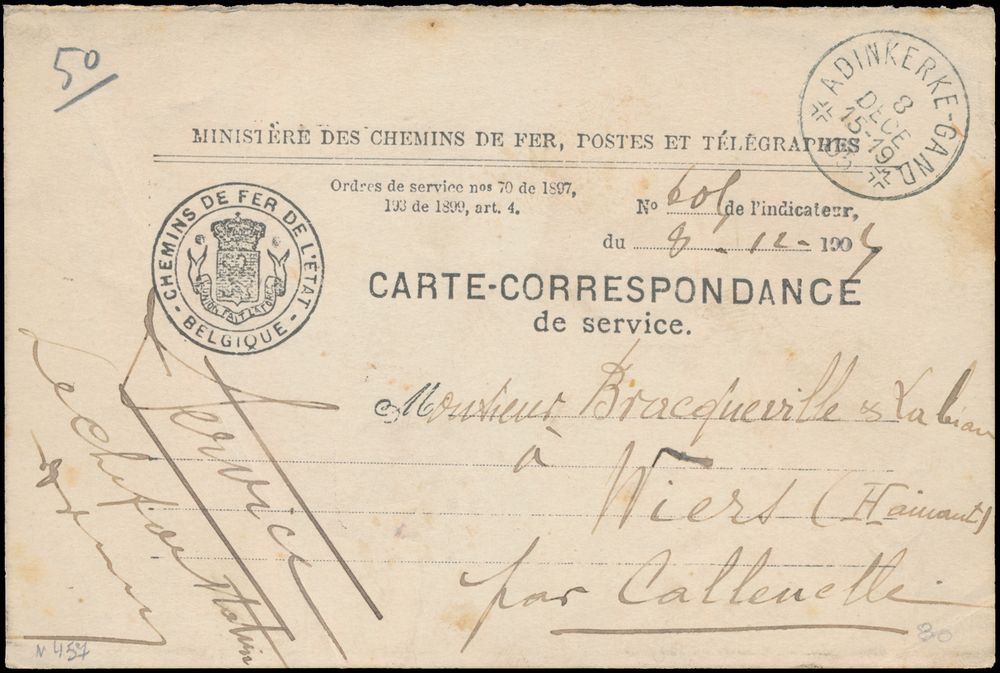 50
ADINKERKE-GAND
8
DECE
15-19
MINISTÈRE DES CHEMINS DE FER, POSTES ET TÉLÉGRAPHES
Ordres de service nos 70 de 1897,
193 de 1899, art. 4.
No de l'indicateur,
du 8-12-190
CHEMINS DE FER DE L'ÉTAT
- BELGIQUE -
L'UNION FAIT LA FORCE
CARTE-CORRESPONDANCE
de service.
Monsieur Bracqueville &
à
Wiers (Hainaut)
par Callenelle
Service
Le Chef de Station
N 457